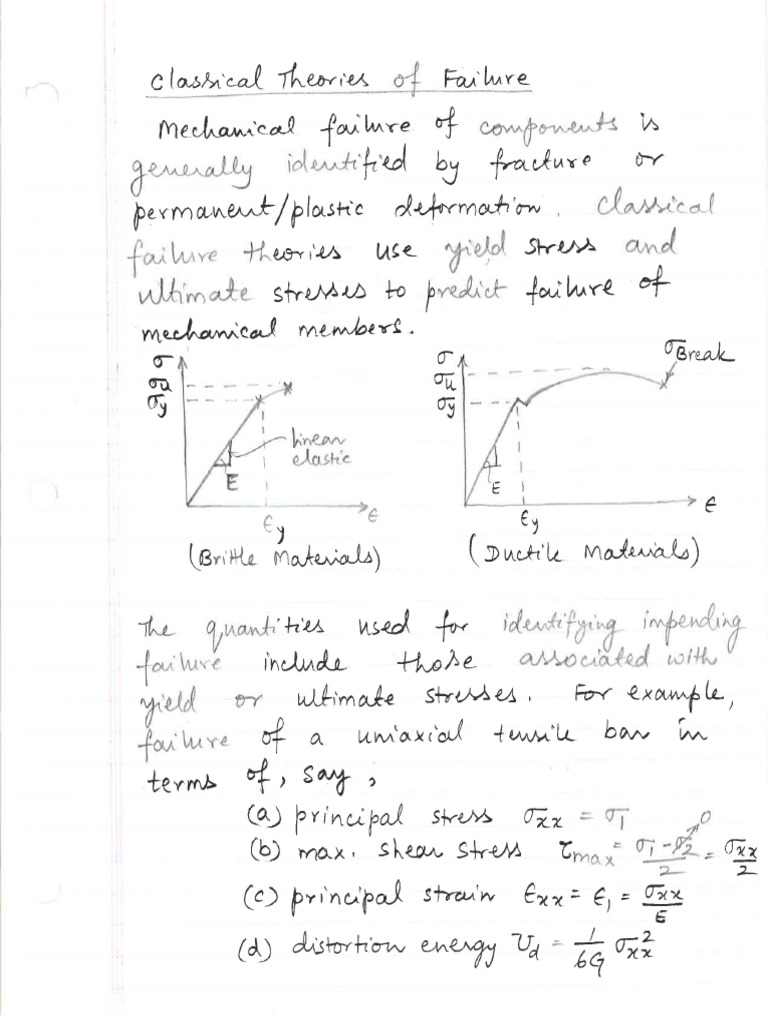 Classical Theories of Failure
Mechanical failure of components is
generally identified by fracture or
permanent/plastic deformation. Classical
failure theories use yield stress and
ultimate stresses to predict failure of
mechanical members.
σ
σu
σy
linear
elastic
E
ϵy
ϵ
(Brittle Materials)
σ
σu
σy
σBreak
E
ϵy
ϵ
(Ductile Materials)
The quantities used for identifying impending
failure include those associated with
yield or ultimate stresses. For example,
failure of a uniaxial tensile bar in
terms of, say,
(a) principal stress σxx = σ1
(b) max. shear stress τmax = (σ1 - σ2)/2 = σxx/2
0
(c) principal strain ϵxx = ϵ1 = σxx/E
(d) distortion energy Ud = 1/6G σxx²